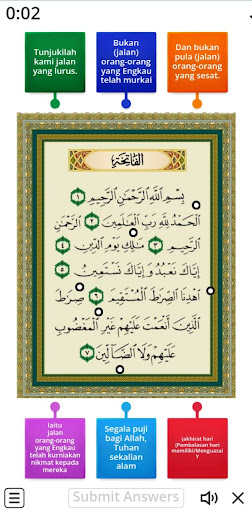 0:02
Tunjukilah
kami jalan
yang lurus.
Bukan
(jalan)
orang-orang
yang Engkau
telah murkai
Dan bukan
pula (jalan)
orang-orang
yang sesat.
الفاتحة
بِسْمِ ٱللَّهِ ٱلرَّحْمَٰنِ ٱلرَّحِيمِ ١
ٱلْحَمْدُ لِلَّهِ رَبِّ ٱلْعَٰلَمِينَ ٢ ٱلرَّحْمَٰنِ
ٱلرَّحِيمِ ٣ مَٰلِكِ يَوْمِ ٱلدِّينِ ٤
إِيَّاكَ نَعْبُدُ وَإِيَّاكَ نَسْتَعِينُ ٥
ٱهْدِنَا ٱلصِّرَٰطَ ٱلْمُسْتَقِيمَ ٦ صِرَٰطَ
ٱلَّذِينَ أَنْعَمْتَ عَلَيْهِمْ غَيْرِ ٱلْمَغْضُوبِ
عَلَيْهِمْ وَلَا ٱلضَّآلِّينَ ٧
Iaitu
jalan
orang-orang
yang Engkau
telah kurniakan
nikmat kepada
mereka
Segala puji
bagi Allah,
Tuhan
sekalian
alam
(akhirat hari
(Pembalasan hari
memiliki/Menguasai
Y
Submit Answers